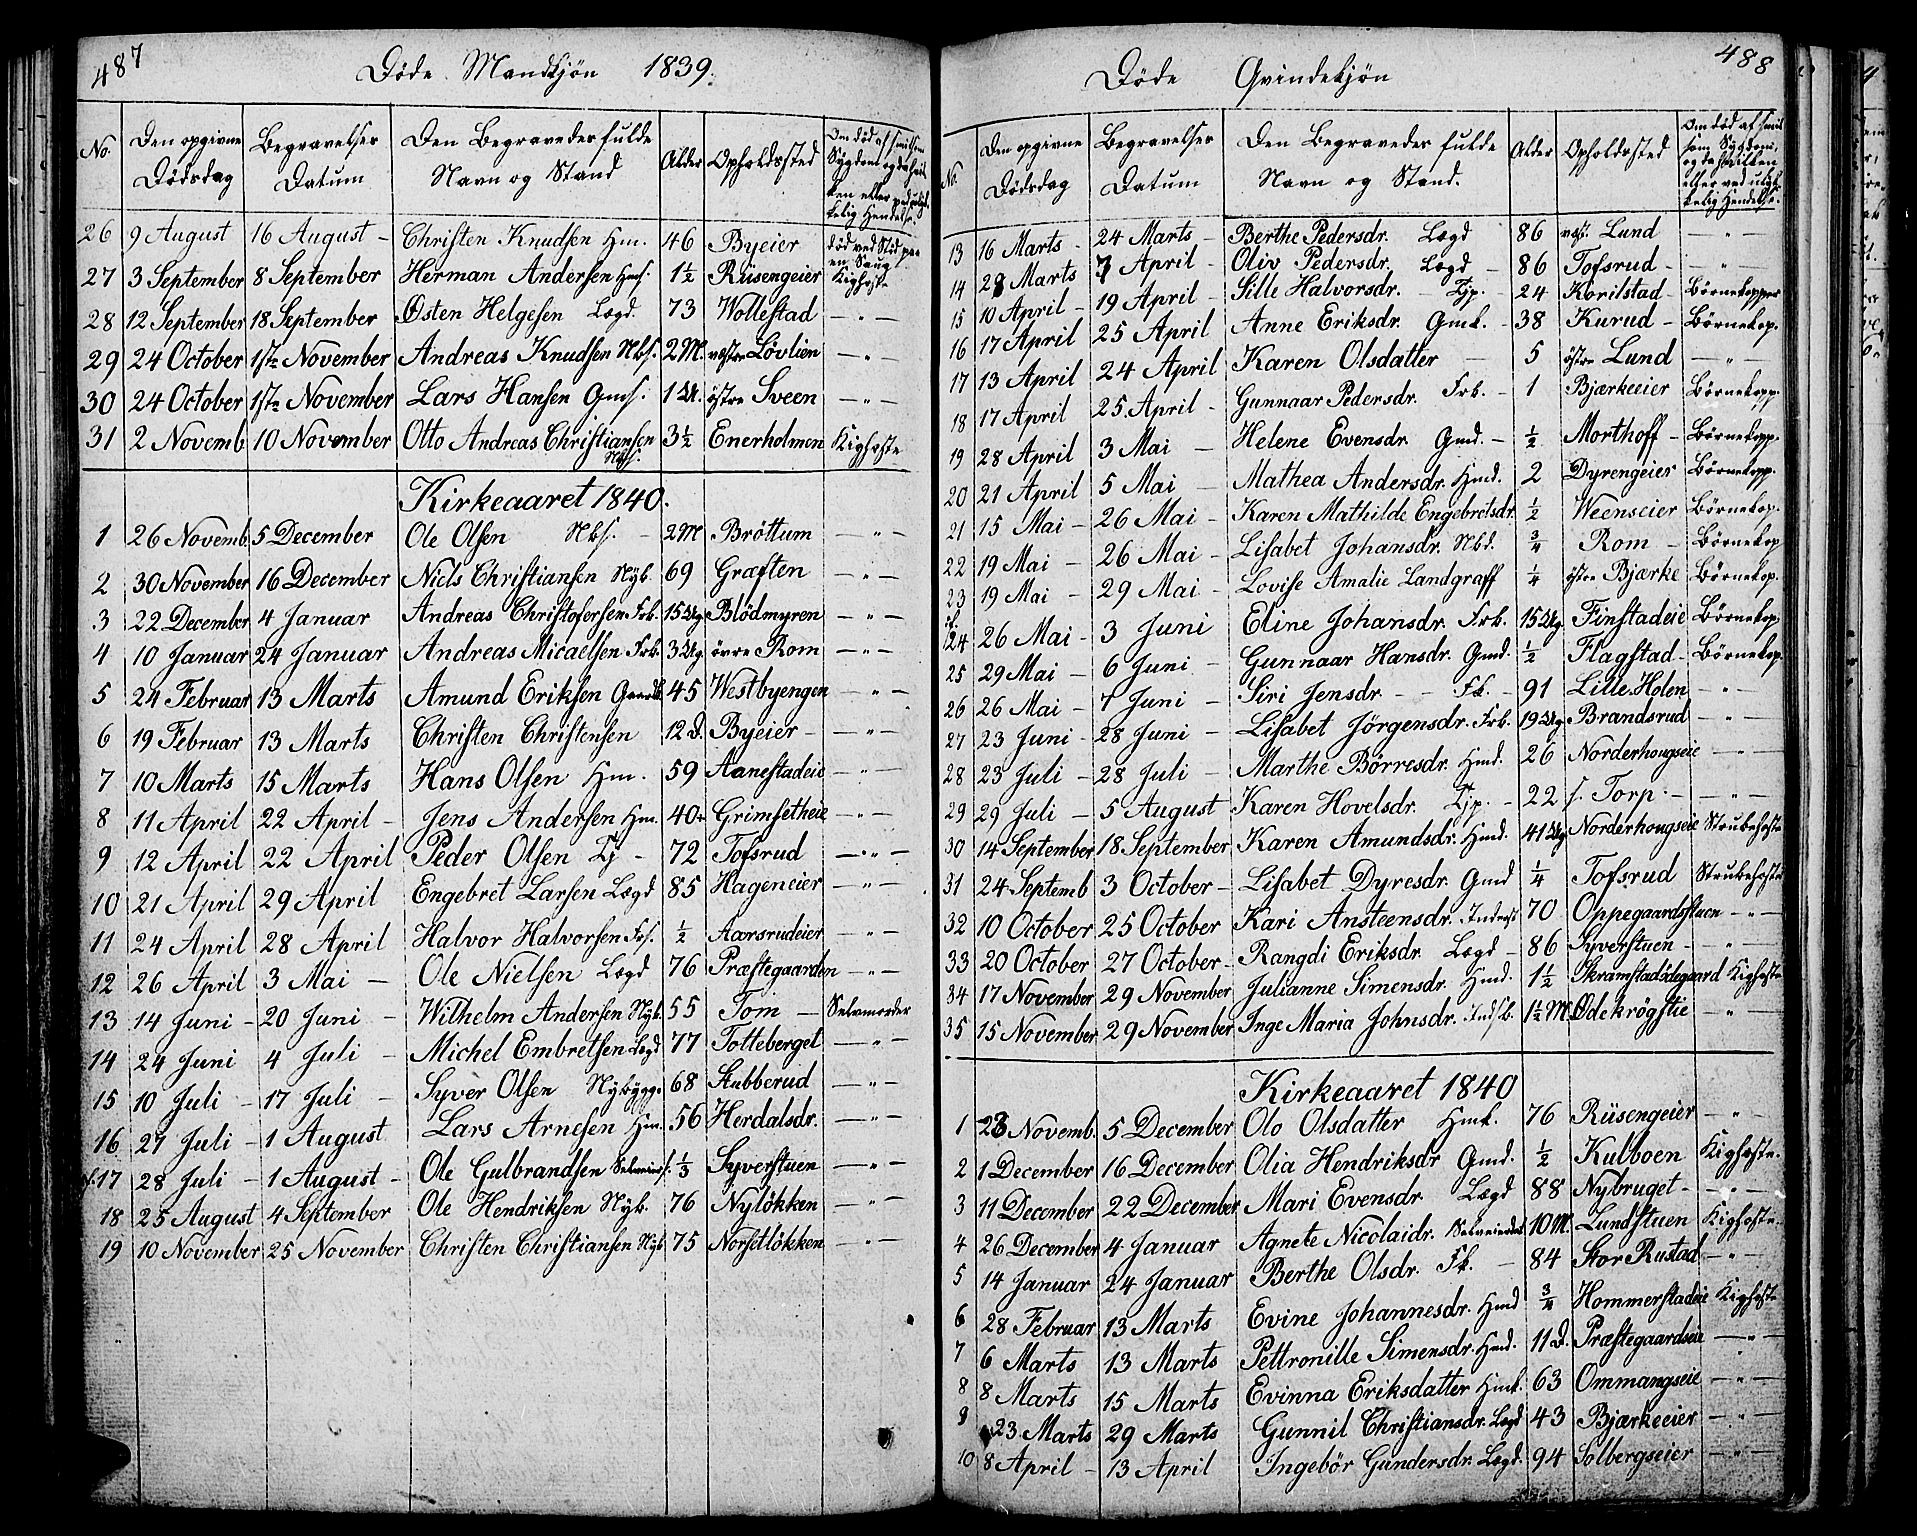 487
Døde Mandkjøn 1839.
No. | Den opgivne Dødsdag | Begravelses Datum | Den Begravedes fulde Navn og Stand | Alder | Opholdssted | Om død af smitsom Sygdom
26 9 August 16 August – Christen Knudsen Hm. 46 Byeier død ved Slid paa en Saug
27 3 September 8 September Herman Andersen Hms. 1½ Rüsengeier Kighoste
28 12 September 18 September Østen Helgesen Lægd. 73 Wollestad – „ –
29 24 October 1ste November Andreas Knudsen Nbs. 2 M. vestre Løvlien – „ –
30 24 October 1ste November Lars Hansen Gms. 1 U. östre Sveen – „ –
31 2 Novemb 10 November Otto Andreas Christiansen Nbs. 3½ Enerholmen Kighoste
Kirkeaaret 1840.
1 26 Novemb. 5 December Ole Olsen Nbs. – 2 M Brøttum – „ –
2 30 November 16 December Niels Christiansen Nyb. 69 Græften – „ –
3 22 December 4 Januar Andreas Christofersen Frb. 15 Ug. Blödmyren – „ –
4 10 Januar 24 Januar Andreas Micaelsen Frb. 3 Ug. övre Rom – „ –
5 24 Februar 13 Marts Amund Eriksen Gaardb. 45 Westbyengen – „ –
6 19 Februar 13 Marts Christen Christensen 12 D. Byeier – – „ –
7 10 Marts 15 Marts Hans Olsen Hm. 59 Aanestadeie – „ –
8 11 April 22 April – Jens Andersen Hm. 40 Grimsetheie – „ –
9 12 April 22 April Peder Olsen Tj – 72 Tofsrud – „ –
10 21 April 29 April Engebret Larsen Lægd 85 Hageneier – „ –
11 24 April 28 April Halvor Halvorsen Frs. ½ Aarsrudeier – „ –
12 26 April 3 Mai – Ole Nielsen Lægd 76 Præstegaarden – „ –
13 14 Juni – 20 Juni – Wilhelm Andersen Nyb. 55 Tom – Selvmorder
14 24 Juni 4 Juli – Michel Embretsen Lægd 77 Totteberget – „ –
15 10 Juli – 17 Juli – Syver Olsen Nybygg. 68 Stubberud – „ –
16 27 Juli – 1 August Lars Arnesen Hm. 56 Herdalsdr. – „ –
17 28 Juli – 1 August – Ole Gulbrandsen Selveiers. ⅓ Syverstuen – „ –
18 25 August 4 September Ole Hendriksen Nyb. 76 Nyløkken – „ –
19 10 November 25 November Christen Christiansen Nyb 75 Norsetløkken – „ –
488
Døde Qvindekjön
No. | Den opgivne Dødsdag | Begravelses Datum | Den Begravedes fulde Navn og Stand. | Alder | Opholdssted | Om død af smitsom Sygdom, og da hvilken eller ved ulykkelig Hendelse.
13 16 Marts – 24 Marts – Berthe Pedersdr. Lægd 86 Lund – „ –
14 28 Marts 7 April – Oliv Pedersdr. Lægd – 86 Tofsrud – – „ –
15 10 April – 19 April – Sille Halvorsdr. – Tjp. – 24 Korilstad – Børnekopper
16 17 April 25 April Anne Eriksdr. Gmk. – 38 Kurud – Børnekop.
17 13 April 24 April Karen Olsdatter – 5 östre Lund – „ –
18 17 April 25 April – Gunnaar Pedersdr. Frb. – 1 Bjærkeeier Børnekopp.
19 28 April 3 Mai – Helene Evensdr. Gmd. – ½ Morthoff – Børnekopp.
20 21 April 5 Mai – Mathea Andersdr. Hmd. 2 Dyrengeier Børnekopp.
21 15 Mai – 26 Mai – Karen Mathilde Engebretsdr. ½ Weenseier Børnekop.
22 19 Mai – 26 Mai – Lisabet Johansdr. Nbd. ¾ Rom – Børnekop
23 19 Mai – 29 Mai – Lovise Amalie Landgraff ¼ östre Bjærke Børnekop.
24 26 Mai – 3 Juni Eline Johansdr. Frb. 15 Ug. Finstadeie Børnekop
25 29 Mai – 6 Juni – Gunnaar Hansdr. Gmd. ½ Flagstad – Børnekop.
26 26 Mai – 7 Juni – Siri Jensdr. – – Fk. – 91 Lille Holen – „ –
27 23 Juni – 28 Juni – Lisabet Jörgensdr. Frb. 19 Ug. Brandsrud – „ –
28 23 Juli – 28 Juli – Marthe Børresdr. Hmd. 26 Norderhougseie – „ –
29 29 Juli – 5 August Karen Hovelsdr. Tjp. – 22 s. Torp. – – „ –
30 14 September 18 September Karen Amundsdr. Hmd. 41 Ug. Norderhougseie Strubehoste
31 24 Septemb 3 October – Lisabet Dyresdr. Gmd ¼ Tofsrud Strubehoste
32 10 October 25 October Kari Ansteensdr. Inderst 70 Oppegaardsstuen – „ –
33 20 October 27 October – Rangdi Eriksdr. Lægd – 86 Syverstuen – – „ –
34 17 November 29 November Julianne Simensdr. Hmd. 1½ Skramstadødegaard Kighoste
35 15 November 29 November Inge Maria Johnsdr. Indsb. 1½ M. Ødekrøgstie – „ –
Kirkeaaret 1840
1 28 Novemb. 5 December Olo Olsdatter Hmk. 76 Rüsengeier – „ –
2 1 December 16 December Olia Hendriksdr Gmd. ½ Kulboen Kighoste.
3 11 December 22 December Mari Evensdr Lægd 88 Nybruget – – „ –
4 26 December 4 Januar Agnete Nicolaidr. Selveierdat. 10 M. Lundstuen Kighoste.
5 14 Januar 24 Januar Berthe Olsdr. Fk. – 84 Stor Rustad – „ –
6 28 Februar 13 Marts Evine Johannesdr. Hmd ¾ Hommerstadeie Kighoste
7 6 Marts 13 Marts Pettronille Simensdr. Hmd. 11 D. Præstegaardseie – „ –
8 8 Marts 15 Marts Evinna Eriksdatter Hmk. 63 Ommangseie – „ –
9 23 Marts 29 Marts Gunnil Christiansdr. Lægd 43 Bjærkeeier – „ –
10 8 April – 13 April Ingebör Gundersdr. Lægd. 94 Solbergseier – „ –